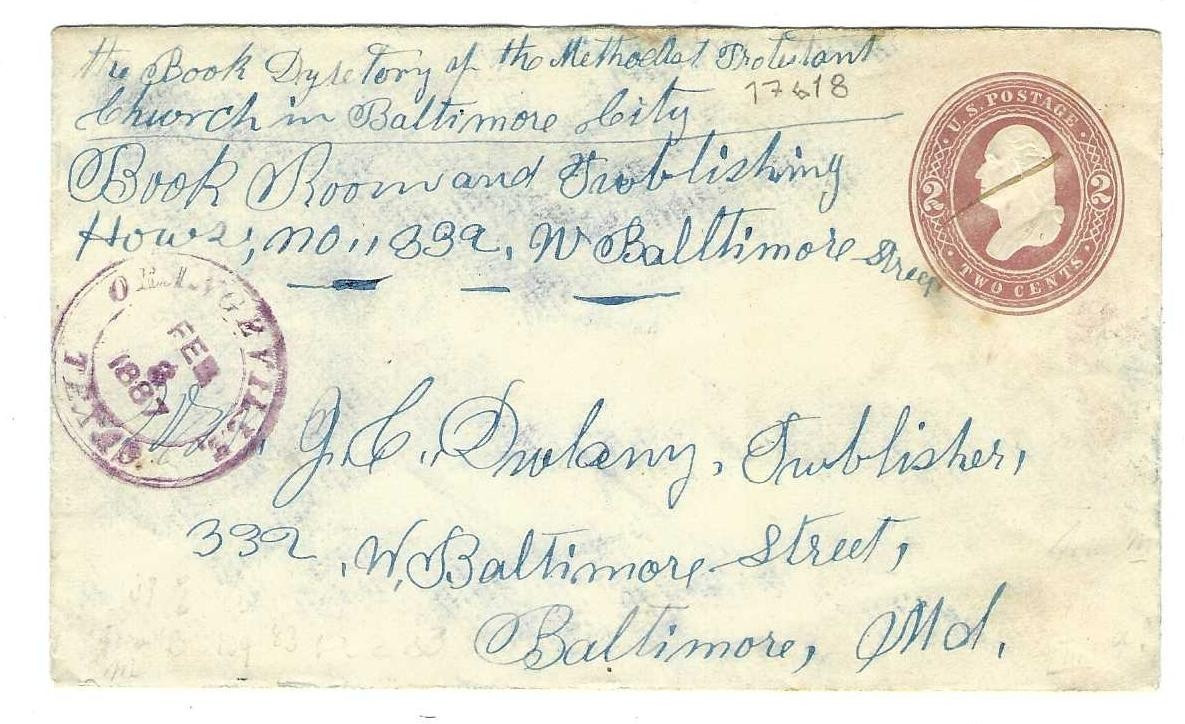 the Book Dysetory of the Methodist Protestant
Church in Baltimore City
17618
Book Room and Publishing
Hows, no., 332, W Balltimore Street
U.S. POSTAGE
2 2
TWO CENTS
ORANGEVILLE
FEB
8
1887
TEXAS
J. C. Dulany, Publisher,
332, W. Baltimore Street,
Baltimore, Md.